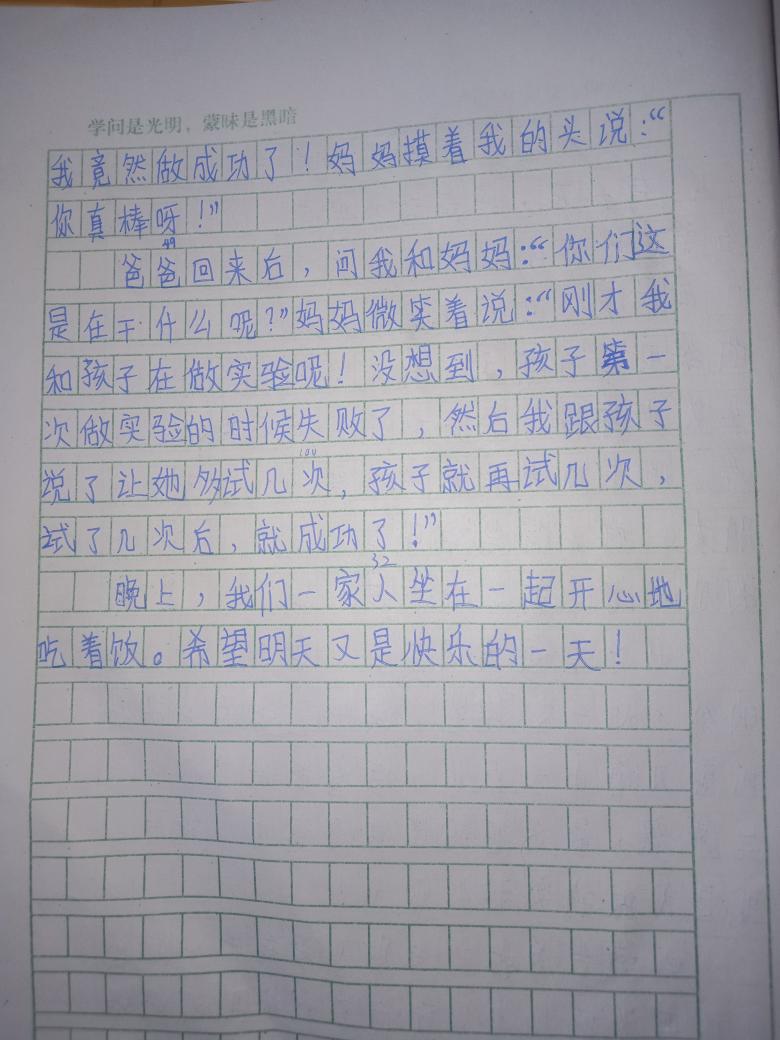 学问是光明，蒙昧是黑暗
我竟然做成功了！妈妈摸着我的头说：“
你真棒呀！”
爸爸回来后，问我和妈妈：“你们这
是在干什么呢？”妈妈微笑着说：“刚才我
和孩子在做实验呢！没想到，孩子第一
次做实验的时候失败了，然后我跟孩子
说了让她多试几次，孩子就再试几次，
试了几次后，就成功了！”
晚上，我们一家人坐在一起开心地
吃着饭。希望明天又是快乐的一天！